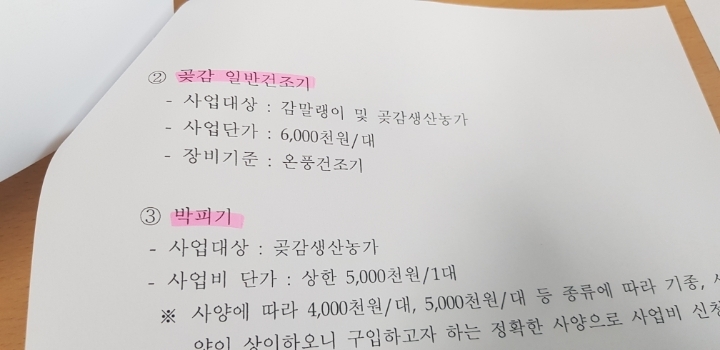 ② 곶감 일반건조기
- 사업대상 : 감말랭이 및 곶감생산농가
- 사업단가 : 6,000천원/대
- 장비기준 : 온풍건조기
③ 박피기
- 사업대상 : 곶감생산농가
- 사업비 단가 : 상한 5,000천원/1대
※ 사양에 따라 4,000천원/대, 5,000천원/대 등 종류에 따라 기종,
양이 상이하오니 구입하고자 하는 정확한 사양으로 사업비 신청